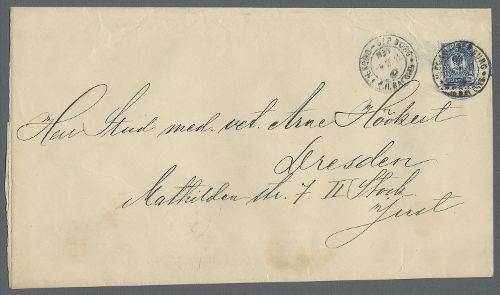 Herr Stud med. vet. Arne Höckert
Dresden
Mathilden str. 7. II Stock